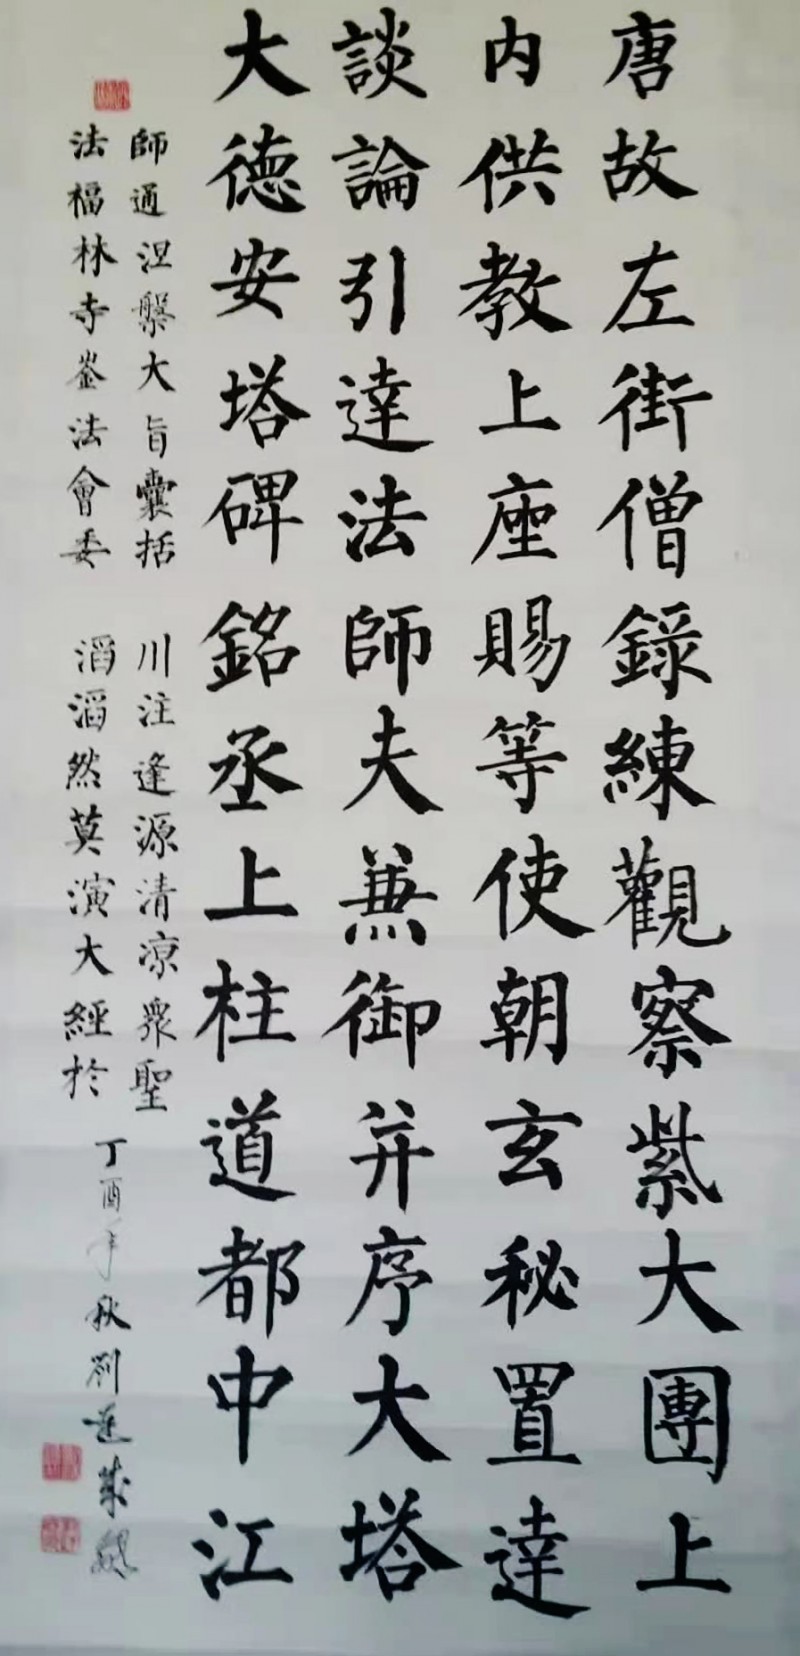 唐故左街僧錄練觀察紫大團上
内供教上座賜等使朝玄秘置達
談論引達法師夫兼御并序大塔
大德安塔碑銘丞上柱道都中江
師通涅槃大旨囊括 川注逢源清凉衆聖
法福林寺崟法會委 滔滔然莫演大經於
丁酉年秋劉